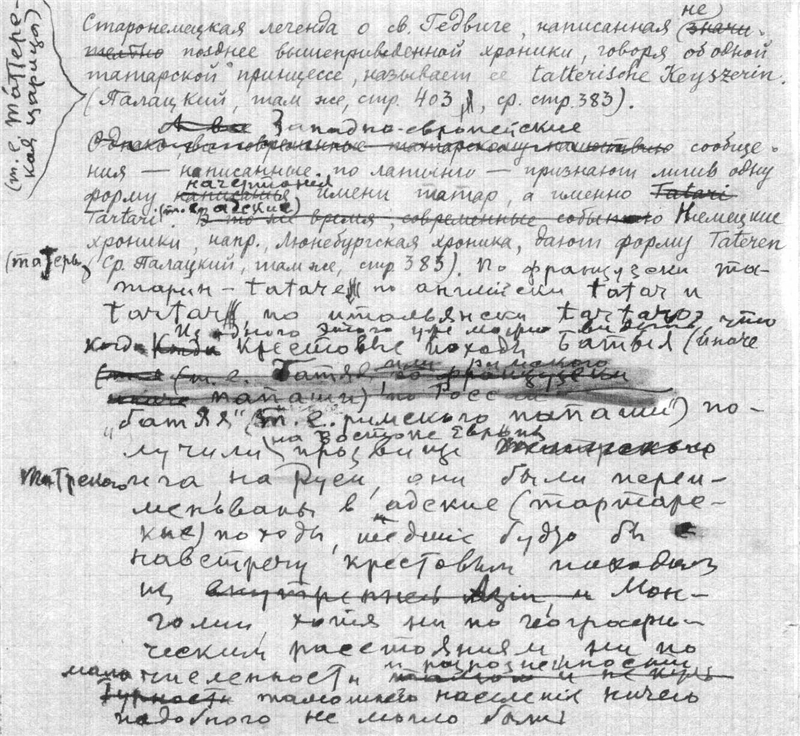 (т. е. татерс-
кая царица)
не
Старонемецкая легенда о св. Гедвиге, написанная (значи-
тельно позднее вышеприведенной хроники, говоря об одной
татарской принцессе, называет ее tatterische Keyszerin.
(Палацкий, там же, стр. 403, ср. стр. 383).
А все Западно-европейские
Однако, современные татарскому нашествию сообще-
ния — написанные по латыни — признают лишь одну
начертания
форму написанья имени татар, а именно Tatari
Tartari (т. е. адские) В то же время, современные событию Немецкие
хроники, напр., Люнебургская хроника, дают форму Tateren
(татеры, Ср. Палацкий, там же, стр 383). По французски та-
тарин — tatare, по английски tatar и
tartar, по итальянски tartaro,
Из одного этого уже можно видеть, что
когда Когда крестовые походы Батыя (иначе
(т. е. Татяв или римского
иначе папаши) по России
"батяя" (т. е. римского папаши") по-
на востоке Европы
лучили прозвище татарского
татрского ига на Руси, они были переи-
менованы в "адские (тартарс-
кие) походы, шедшие будто бы
навстречу крестовым походам
из внутренней Азии, и Мон-
голии, хотя ни по географи-
ческим расстояниям, ни по
мало численности и
тамошнего населения ничего
подобного не могло быть